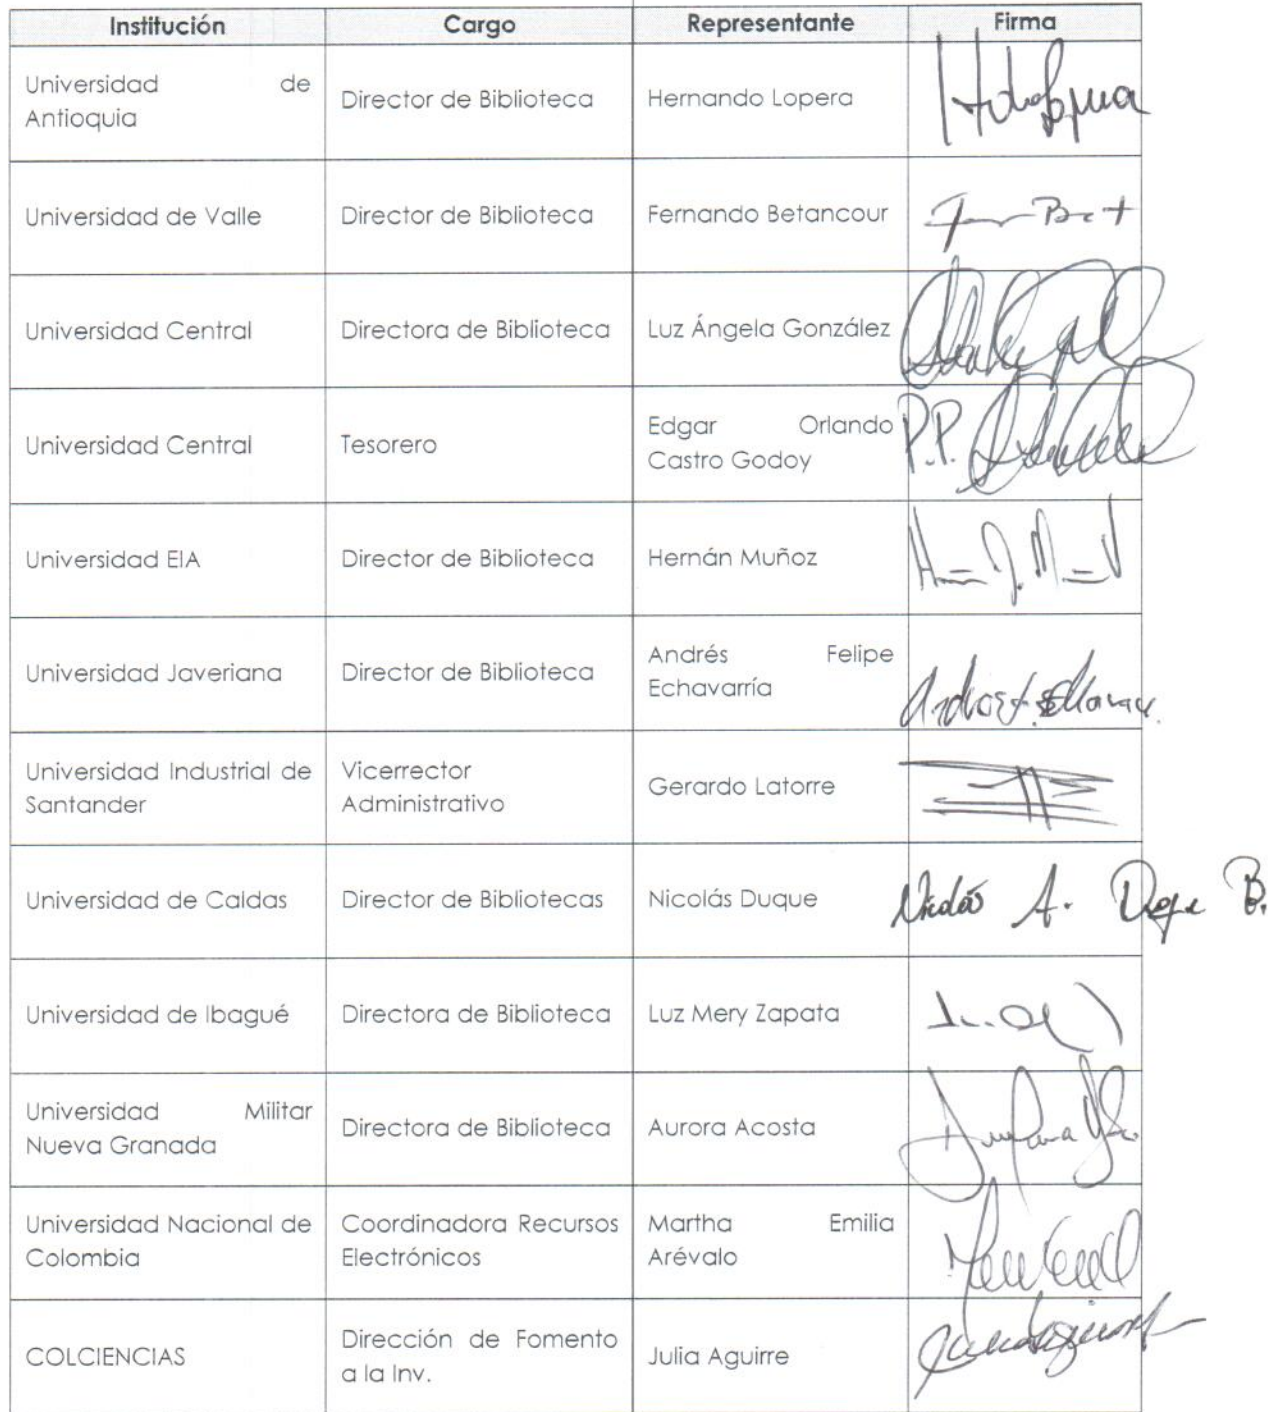 Institución Cargo Representante Firma
Universidad de
Antioquia
Director de Biblioteca
Hernando Lopera
Universidad de Valle
Director de Biblioteca
Fernando Betancour
Universidad Central
Directora de Biblioteca
Luz Ángela González
Universidad Central
Tesorero
Edgar Orlando
Castro Godoy
P.P.
Universidad EIA
Director de Biblioteca
Hernán Muñoz
Universidad Javeriana
Director de Biblioteca
Andrés Felipe
Echavarría
Universidad Industrial de
Santander
Vicerrector
Administrativo
Gerardo Latorre
Universidad de Caldas
Director de Bibliotecas
Nicolás Duque
Nicolás A. Duque B.
Universidad de Ibagué
Directora de Biblioteca
Luz Mery Zapata
Universidad Militar
Nueva Granada
Directora de Biblioteca
Aurora Acosta
Universidad Nacional de
Colombia
Coordinadora Recursos
Electrónicos
Martha Emilia
Arévalo
COLCIENCIAS
Dirección de Fomento
a la Inv.
Julia Aguirre